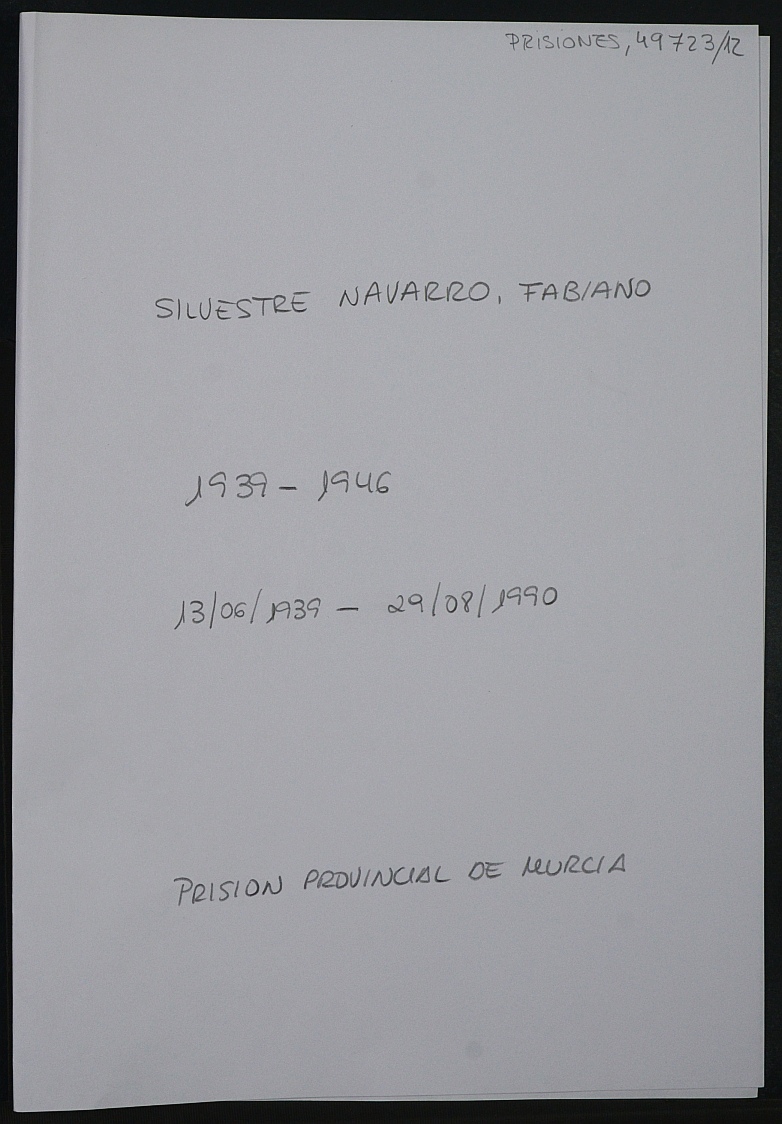 PRISIONES, 49723/12
SILVESTRE NAVARRO, FABIANO
1939 - 1946
13/06/1939 - 29/08/1990
PRISION PROVINCIAL DE MURCIA